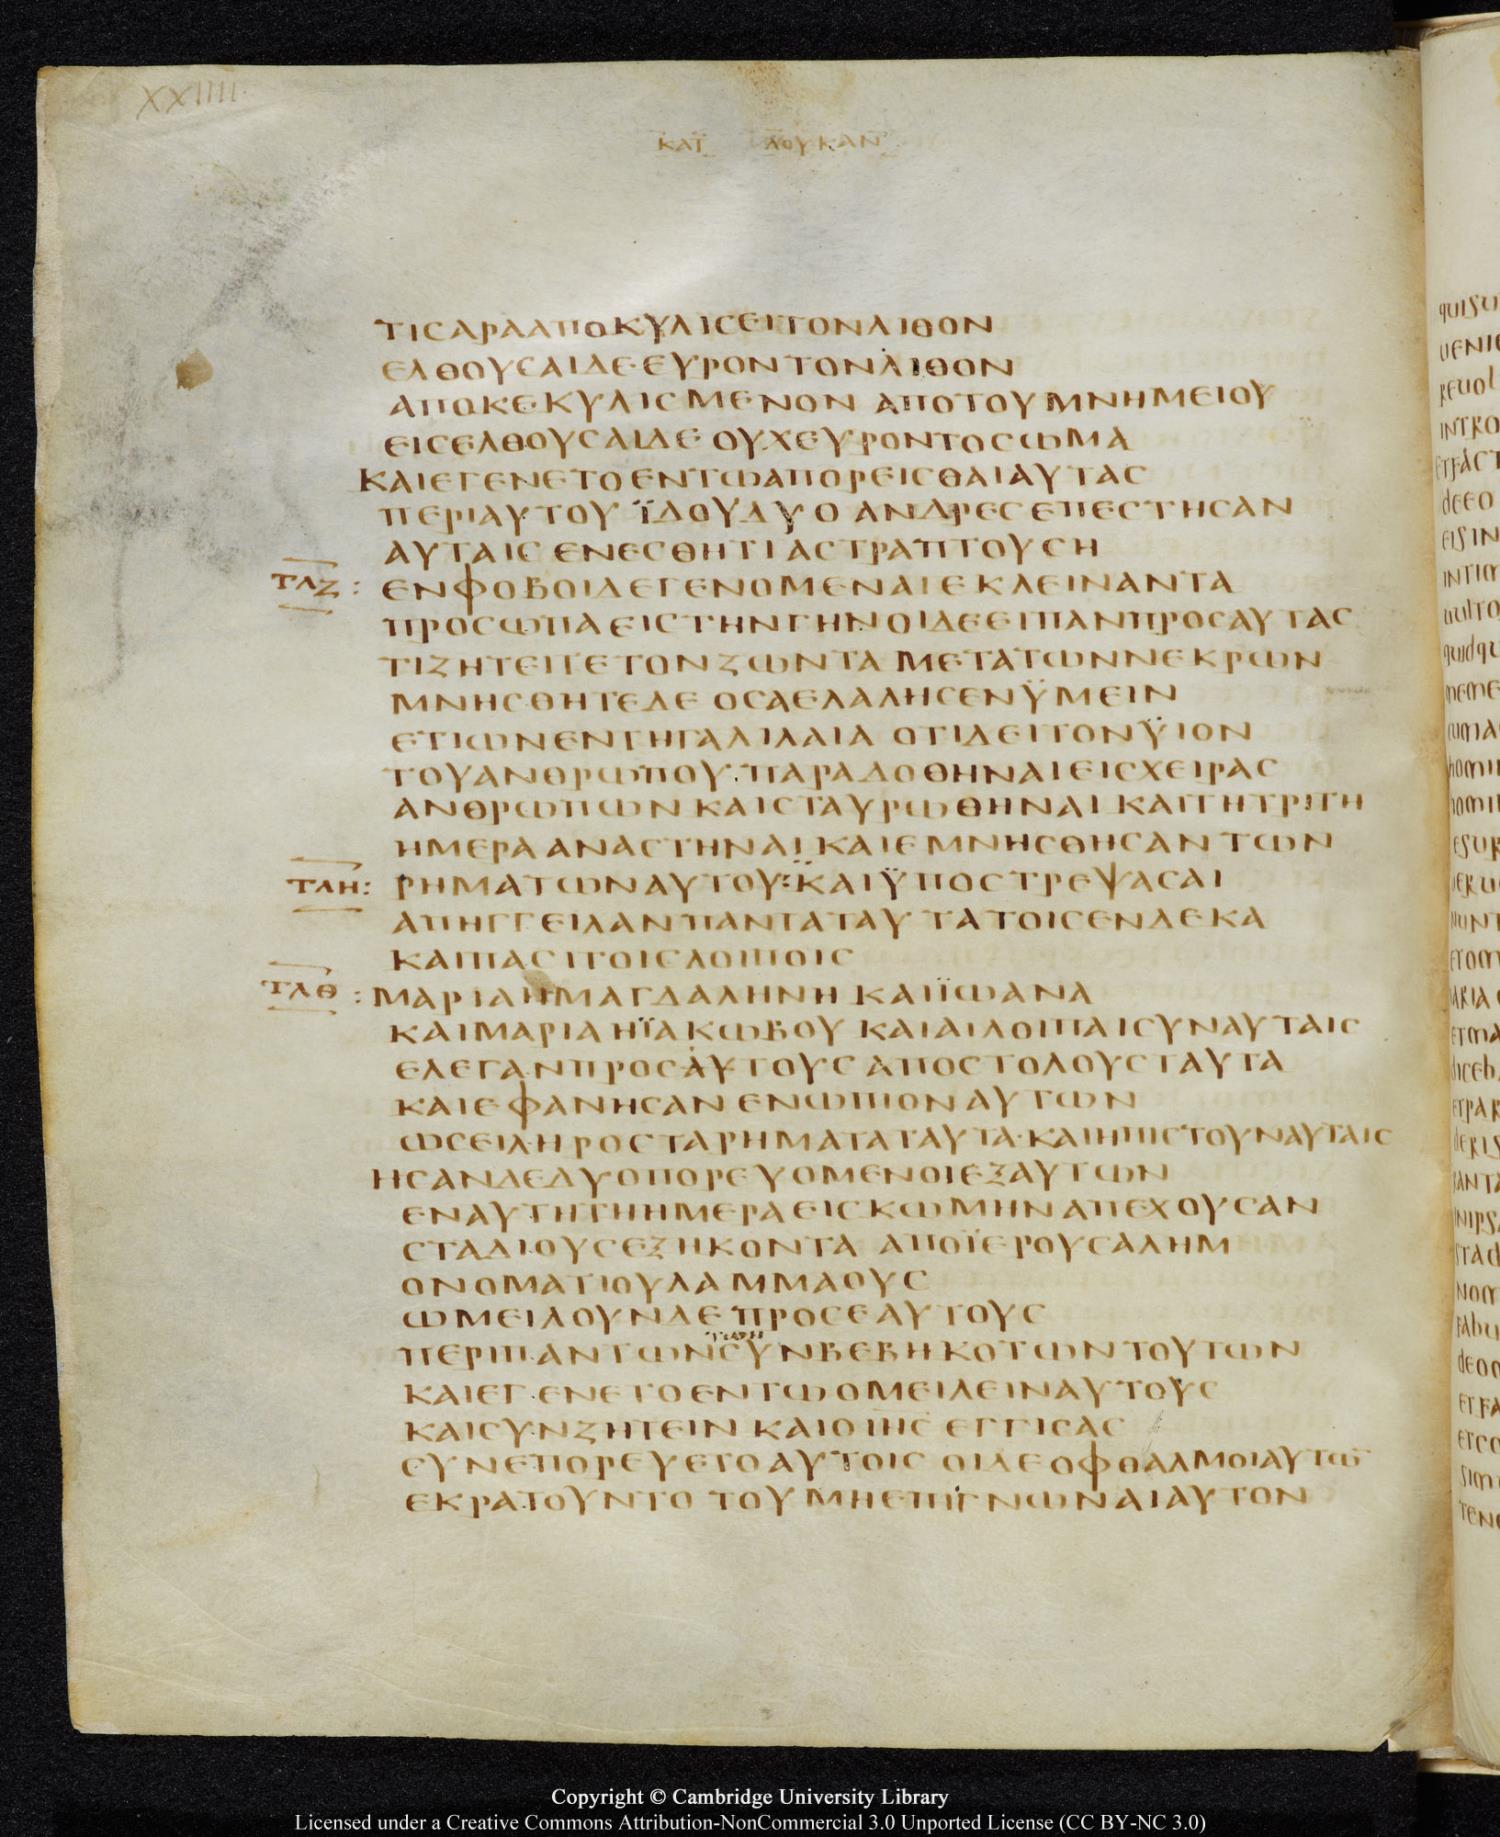 XXIIII
ΚΑΤ ΛΟΥΚΑΝ
ΤΙСΑΡΑΑΠΟΚΥΛΙСΕΙΤΟΝΛΙΘΟΝ
ΕΛΘΟΥСΑΙΔΕ·ΕΥΡΟΝΤΟΝΛΙΘΟΝ
ΑΠΟΚΕΚΥΛΙСΜΕΝΟΝ ΑΠΟΤΟΥΜΝΗΜΕΙΟΥ
ΕΙСΕΛΘΟΥСΑΙΔΕ ΟΥΧΕΥΡΟΝΤΟСΩΜΑ
ΚΑΙΕΓΕΝΕΤΟΕΝΤΩΑΠΟΡΕΙСΘΑΙΑΥΤΑС
ΠΕΡΙΑΥΤΟΥ ΪΔΟΥΔΥΟ ΑΝΔΡΕСΕΠΕСΤΗСΑΝ
ΑΥΤΑΙС ΕΝΕСΘΗΤΙΑСΤΡΑΠΤΟΥСΗ
ΤΛΖ : ΕΝΦΟΒΟΙΔΕΓΕΝΟΜΕΝΑΙΕΚΛΕΙΝΑΝΤΑ
ΠΡΟСΩΠΑΕΙСΤΗΝΓΗΝΟΙΔΕΕΙΠΑΝΠΡΟСΑΥΤΑС
ΤΙΖΗΤΕΙΤΕΤΟΝΖΩΝΤΑ ΜΕΤΑΤΩΝΝΕΚΡΩΝ
ΜΝΗСΘΗΤΕΔΕ ΟСΑΕΛΑΛΗСΕΝΫΜΕΙΝ
ΕΤΙΩΝΕΝΤΗΓΑΛΙΛΑΙΑ ΟΤΙΔΕΙΤΟΝΫΙΟΝ
ΤΟΥΑΝΘΡΩΠΟΥ·ΠΑΡΑΔΟΘΗΝΑΙΕΙСΧΕΙΡΑС
ΑΝΘΡΩΠΩΝΚΑΙСΤΑΥΡΩΘΗΝΑΙ ΚΑΙΤΗΤΡΙΤΗ
ΗΜΕΡΑΑΝΑСΤΗΝΑΙ ΚΑΙΕΜΝΗСΘΗСΑΝΤΩΝ
ΤΛΗ: ΡΗΜΑΤΩΝΑΥΤΟΥ:ΚΑΙΫΠΟСΤΡΕΨΑСΑΙ
ΑΠΗΓΓΕΙΛΑΝΠΑΝΤΑΤΑΥΤΑΤΟΙСΕΝΔΕΚΑ
ΚΑΙΠΑСΙΤΟΙСΛΟΙΠΟΙС
ΤΛΘ : ΜΑΡΙΑΗΜΑΓΔΑΛΗΝΗ ΚΑΙΪΩΑΝΑ
ΚΑΙΜΑΡΙΑΗΪΑΚΩΒΟΥ ΚΑΙΑΙΛΟΙΠΑΙСΥΝΑΥΤΑΙС
ΕΛΕΓΑΝΠΡΟСΑΥΤΟΥСΑΠΟСΤΟΛΟΥСΤΑΥΤΑ
ΚΑΙΕΦΑΝΗСΑΝ ΕΝΩΠΙΟΝΑΥΤΩΝ
ΩСΕΙΛΗΡΟСΤΑΡΗΜΑΤΑΤΑΥΤΑ·ΚΑΙΗΠΙСΤΟΥΝΑΥΤΑΙС
ΗСΑΝΔΕΔΥΟΠΟΡΕΥΟΜΕΝΟΙΕΞΑΥΤΩΝ
ΕΝΑΥΤΗΤΗΗΜΕΡΑΕΙСΚΩΜΗΝΑΠΕΧΟΥСΑΝ
СΤΑΔΙΟΥСΕΞΗΚΟΝΤΑ ΑΠΟΪΕΡΟΥСΑΛΗΜ
ΟΝΟΜΑΤΙΟΥΛΑΜΜΑΟΥС
ΩΜΕΙΛΟΥΝΔΕΠΡΟСΕΑΥΤΟΥС
ΠΕΡΙΠΑΝΤΩΝСΥΝΒΕΒΗΚΟΤΩΝΤΟΥΤΩΝ
ΚΑΙΕΓΕΝΕΤΟΕΝΤΩΟΜΕΙΛΕΙΝΑΥΤΟΥС
ΚΑΙСΥΝΖΗΤΕΙΝ ΚΑΙΟΙΗС ΕΓΓΙСΑС
СΥΝΕΠΟΡΕΥΕΤΟΑΥΤΟΙС ΟΙΔΕΟΦΘΑΛΜΟΙΑΥΤΩ̅
ΕΚΡΑΤΟΥΝΤΟ ΤΟΥΜΗΕΠΙΓΝΩΝΑΙΑΥΤΟΝ
Copyright © Cambridge University Library
Licensed under a Creative Commons Attribution-NonCommercial 3.0 Unported License (CC BY-NC 3.0)